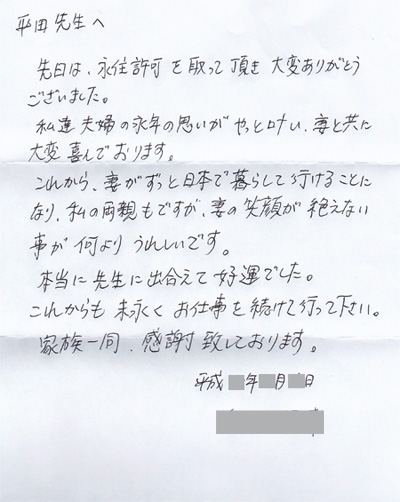 平田先生へ
先日は、永住許可を取って頂き大変ありがとう
ございました。
私達夫婦の永年の思いがやっと叶い、妻と共に
大変喜んでおります。
これから、妻がずっと日本で暮らして行けることに
なり、私の両親もですが、妻の笑顔が絶えない
事が何よりうれしいです。
本当に先生に出合えて好運でした。
これからも末永くお仕事を続けて行って下さい。
家族一同、感謝致しております。
平成 年 月 日